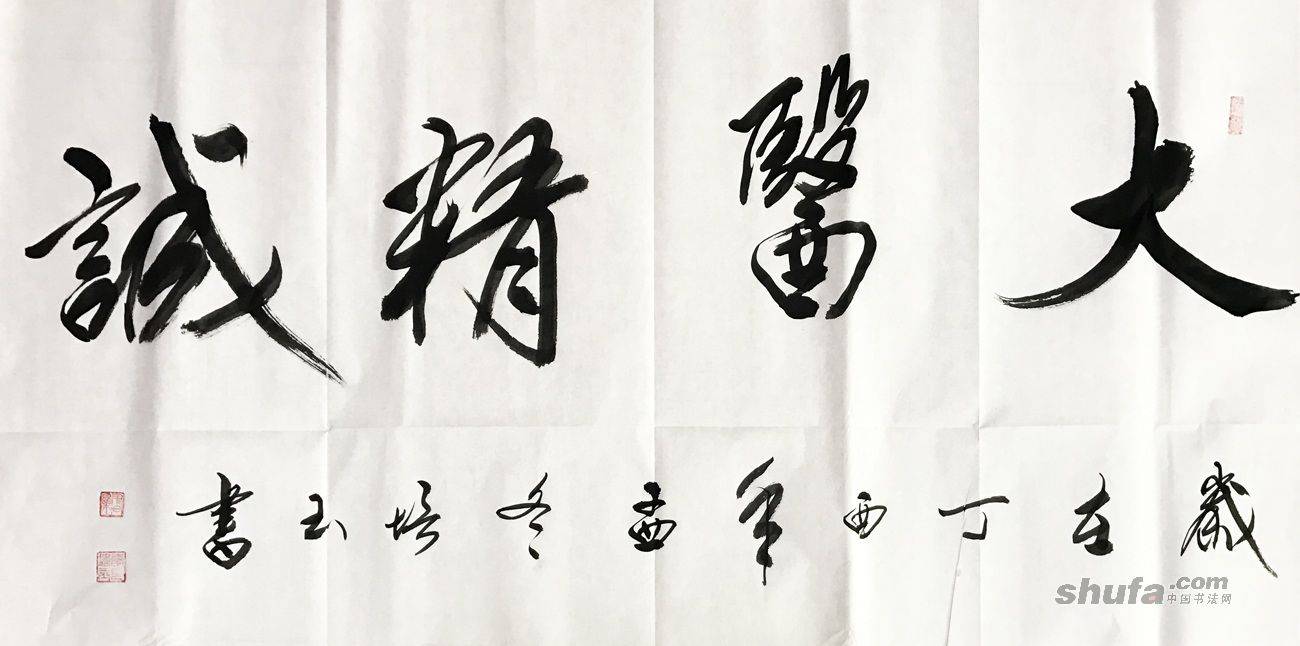 大醫精誠
歲在丁酉年孟冬培玉書
shufa.com
中国书法网